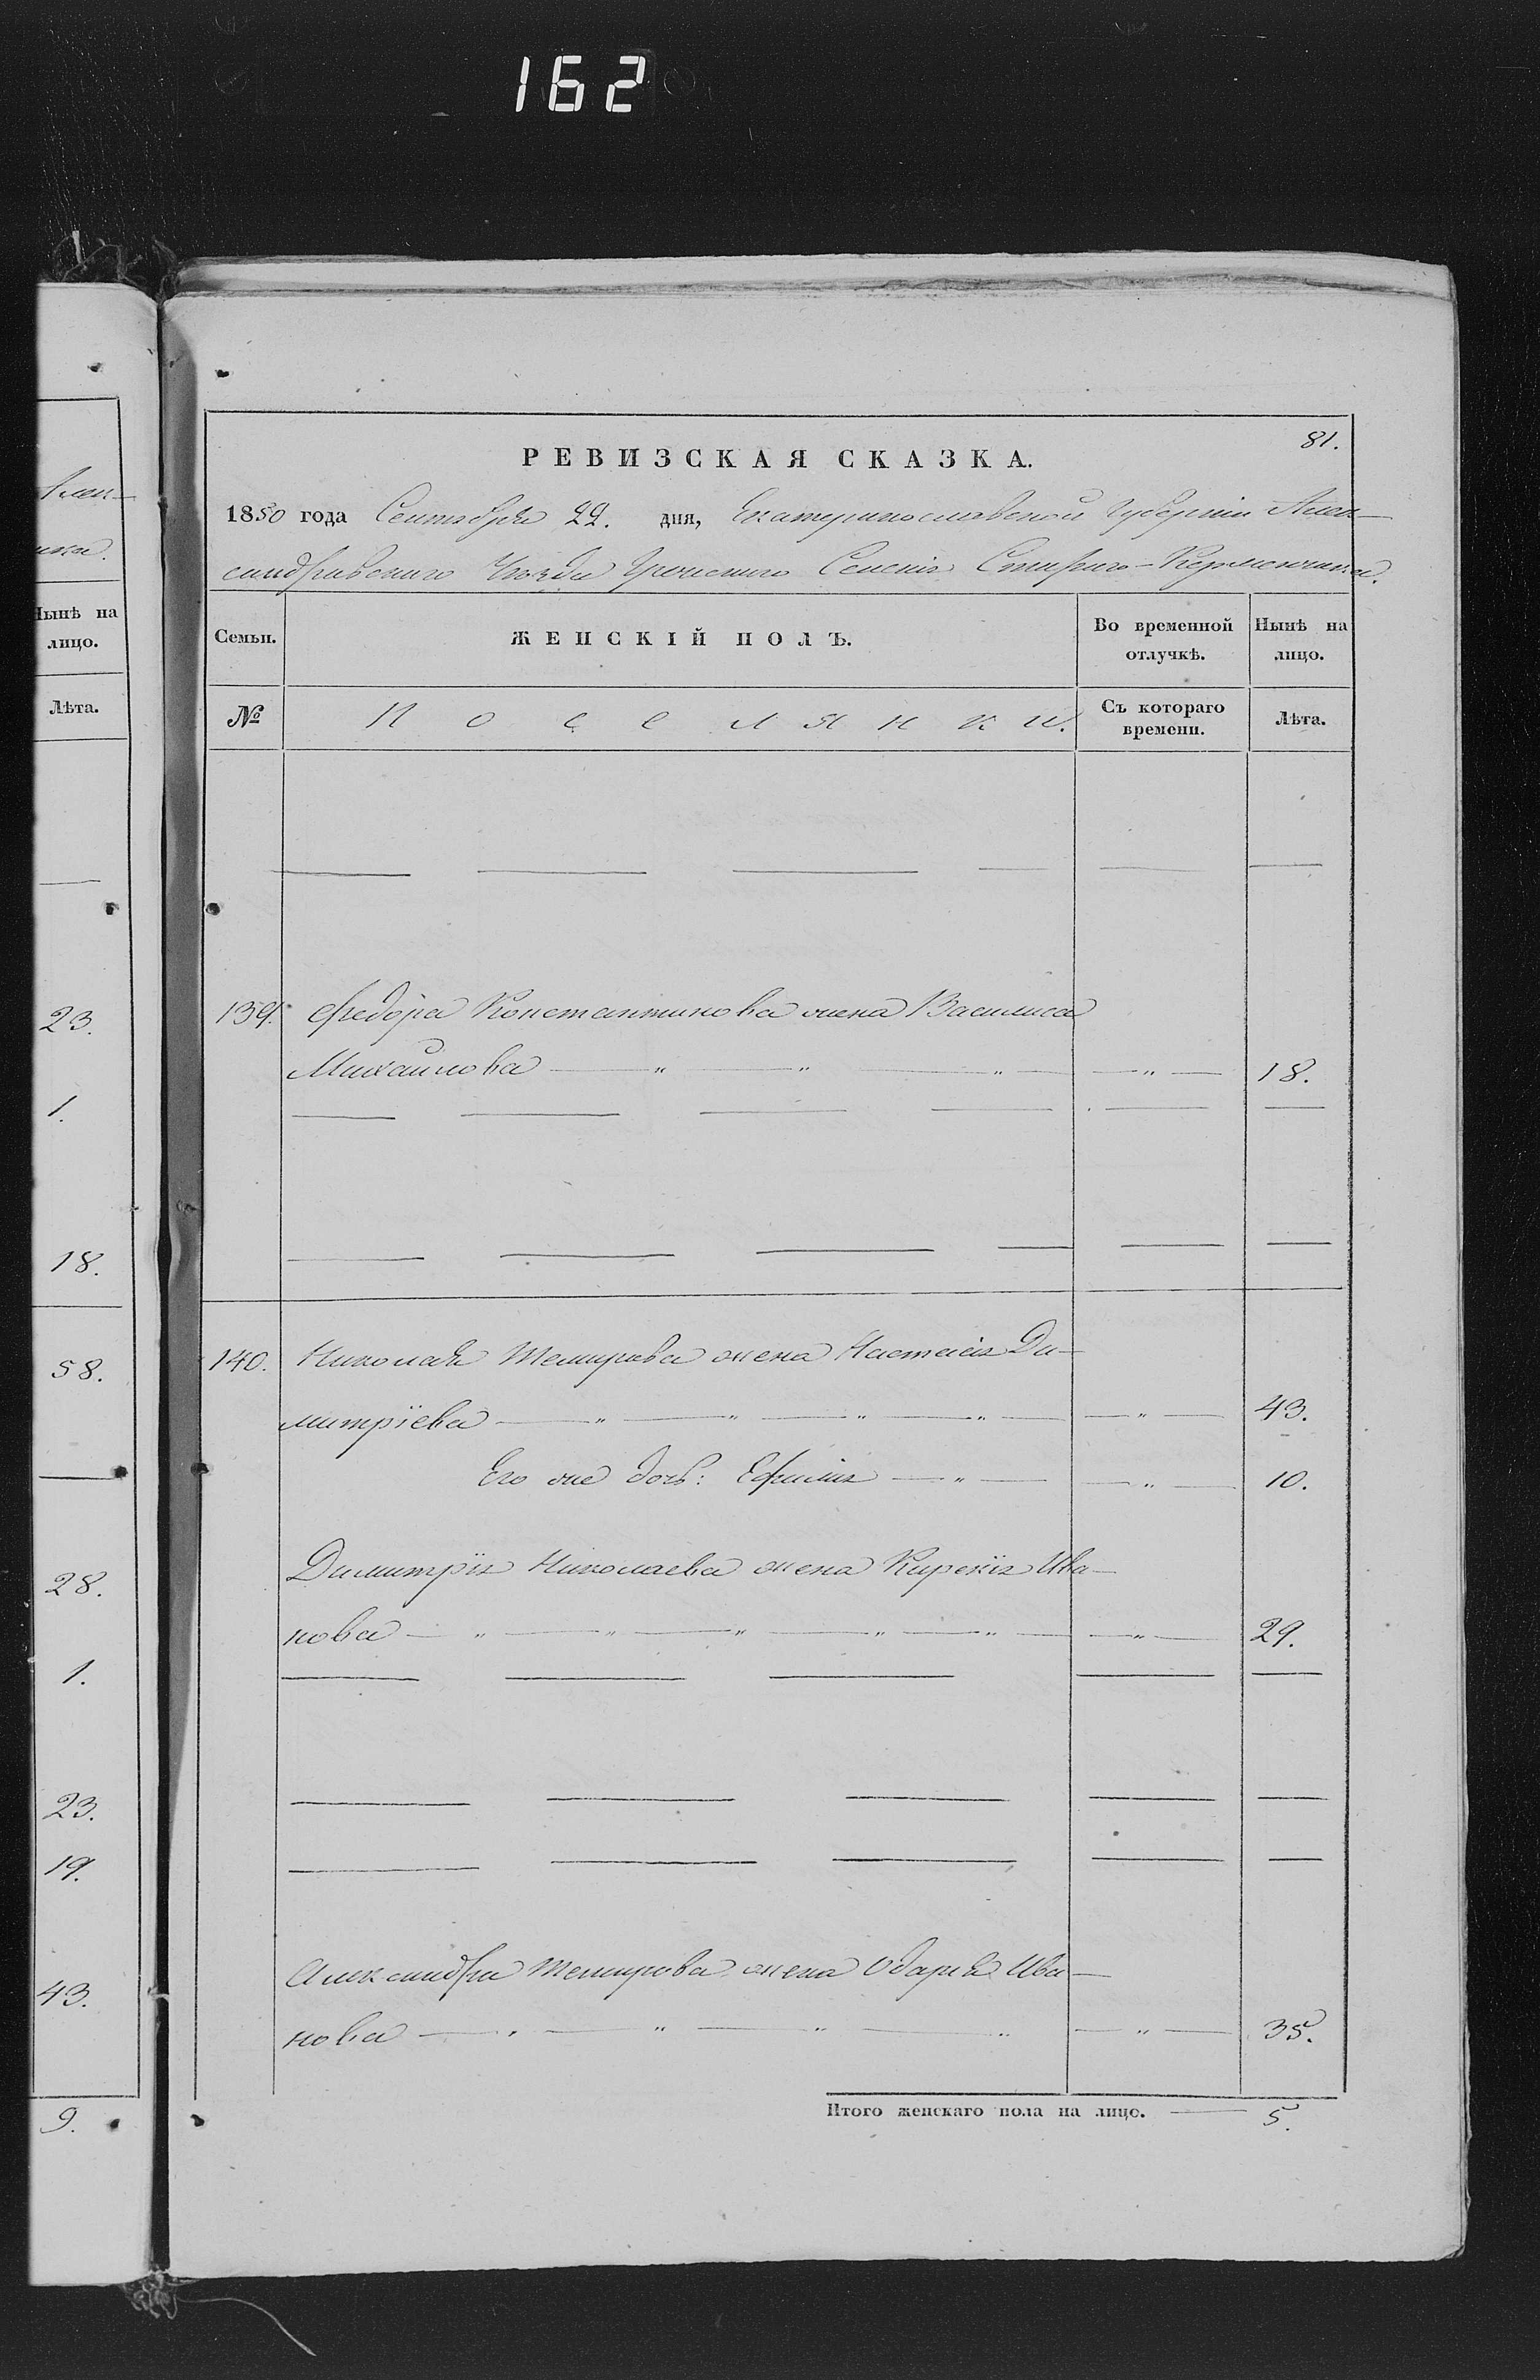 162
81.
РЕВИЗСКАЯ СКАЗКА.
1850 года Сентября 22. дня, Екатеринославской Губерніи Алек-
сандровскаго Уѣзда Греческаго Селенія Стараго-Керменчика.
Семьи.
ЖЕНСКІЙ ПОЛЪ.
Во временной отлучкѣ.
Нынѣ на лицо.
№
Поселянки.
Съ котораго времени.
Лѣта.
139. Федора Константинова жена Василиса
Михайлова — " — " — " — — " — 18.
140. Николая Темирова жена Настасія Ди-
митріева — " — " — " — " — — " — 43.
Его же дочь: Ефимія — " — — " — 10.
Димитрія Николаева жена Кирекія Ива-
нова — " — " — " — " — " — — " — 29.
Александра Темирова жена Одарья Ива-
нова — " — " — " — " — " — 35.
Итого женскаго пола на лицо. — 5.
Алек-
ика.
Нынѣ на
лицо.
Лѣта.
23.
1.
18.
58.
28.
1.
23.
19.
43.
9.